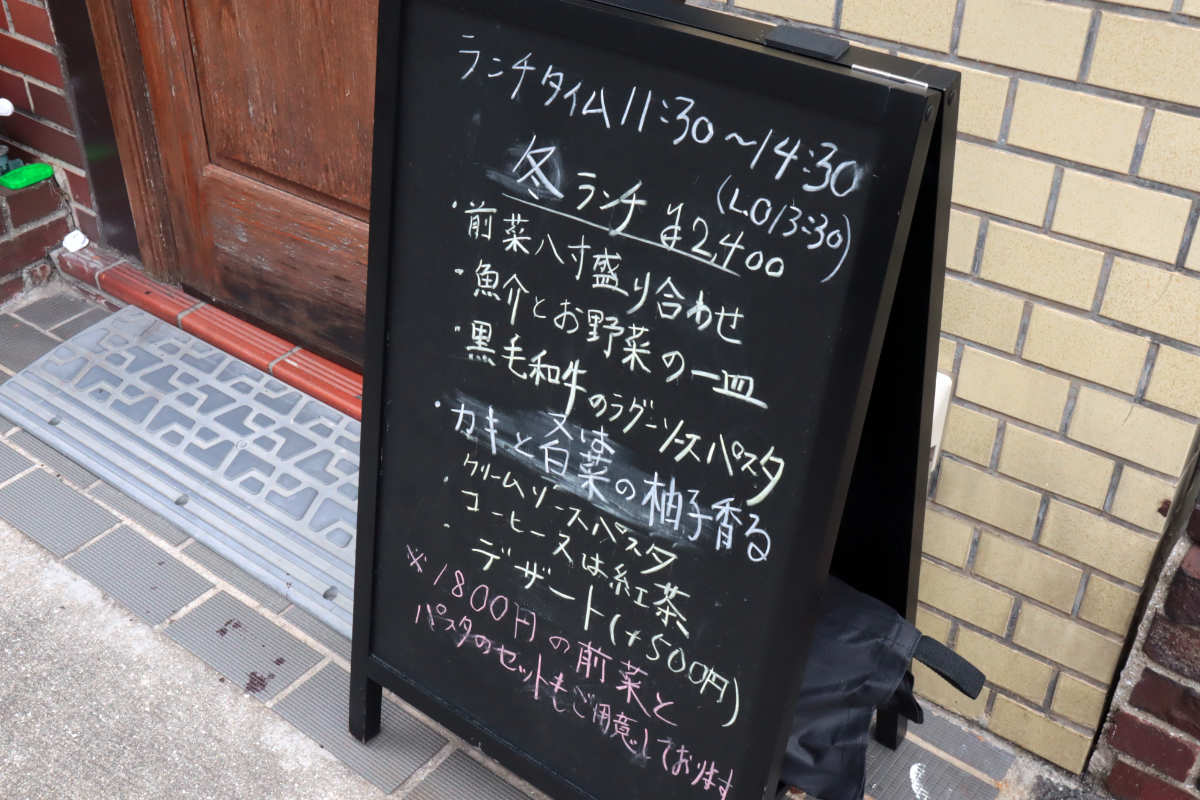 ランチタイム 11:30～14:30
(L.O 13:30)
冬ランチ ¥2,400
・前菜八寸盛り合わせ
・魚介とお野菜の一皿
・黒毛和牛のラグーソースパスタ
又は
・カキと白菜の柚子香る
クリームソースパスタ
・コーヒー又は紅茶
・デザート(+500円)
※1800円の前菜と
パスタのセットもご用意しております